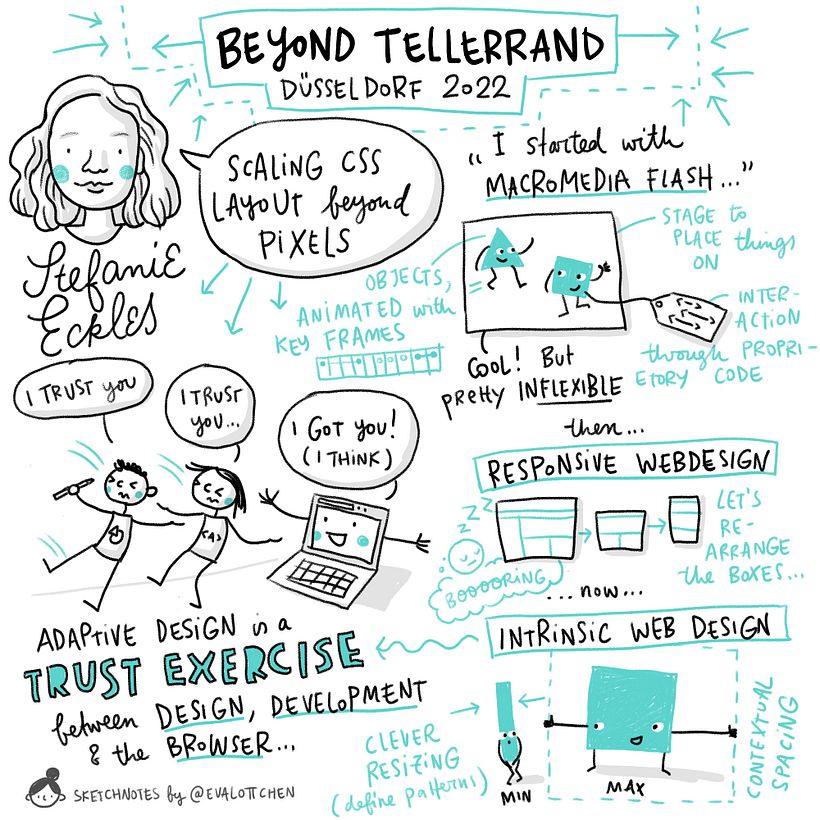 BEYOND TELLERRAND
DÜSSELDORF 2022
SCALING CSS
LAYOUT beyond
PIXELS
Stefanie
Eckles
„I started with
MACROMEDIA FLASH..."
STAGE to
PLACE things
ON
OBJECTS,
ANIMATED with
KEY FRAMES
INTER-
ACTION
through PROPRI-
ETORY CODE
COOL! But
pretty INFLEXIBLE
then...
RESPONSIVE WEBDESIGN
LET'S
RE-
ARRANGE
the BOXES...
Z Z Z
BOOOORING
...now...
INTRINSIC WEB DESIGN
CLEVER
RESIZING
(define patterns)
MIN
MAX
CONTEXTUAL
SPACING
I TRUST YOU
I TRUST
YOU...
I GOT YOU!
(I THINK)
<A>
ADAPTIVE DESIGN is a
TRUST EXERCISE
between DESIGN, DEVELOPMENT
& the BROWSER...
SKETCHNOTES by @EVALOTTCHEN